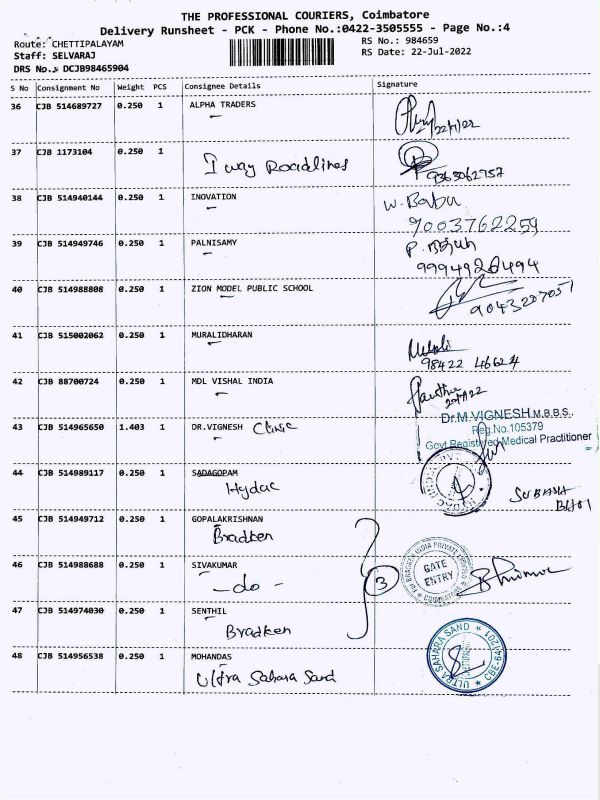 THE PROFESSIONAL COURIERS, Coimbatore
Delivery Runsheet - PCK - Phone No.:0422-3505555 - Page No.:4
Route: CHETTIPALAYAM RS No.: 984659
Staff: SELVARAJ RS Date: 22-Jul-2022
DRS No.: DCJB98465904
S No Consignment No Weight PCS Consignee Details Signature
36 CJB 514689727 0.250 1 ALPHA TRADERS
37 CJB 1173104 0.250 1 I way Roadlines
9363062757
38 CJB 514940144 0.250 1 INOVATION W. Babu
9003762259
39 CJB 514949746 0.250 1 PALNISAMY P.
9994920494
40 CJB 514988808 0.250 1 ZION MODEL PUBLIC SCHOOL
9043207051
41 CJB 515002062 0.250 1 MURALIDHARAN
98422 46624
42 CJB 88700724 0.250 1 MDL VISHAL INDIA
43 CJB 514965650 1.403 1 DR.VIGNESH Clinic
Dr.M.VIGNESH M.B.B.S.,
Reg.No.105379
Govt Registered Medical Practitioner
44 CJB 514989117 0.250 1 SADAGOPAM
Hydac
45 CJB 514949712 0.250 1 GOPALAKRISHNAN
Bradken
46 CJB 514988688 0.250 1 SIVAKUMAR
- do - 3
GATE ENTRY
47 CJB 514974030 0.250 1 SENTHIL
Bradken
48 CJB 514956538 0.250 1 MOHANDAS
Ultra Sahara Sand
ULTRA SAHARA SAND